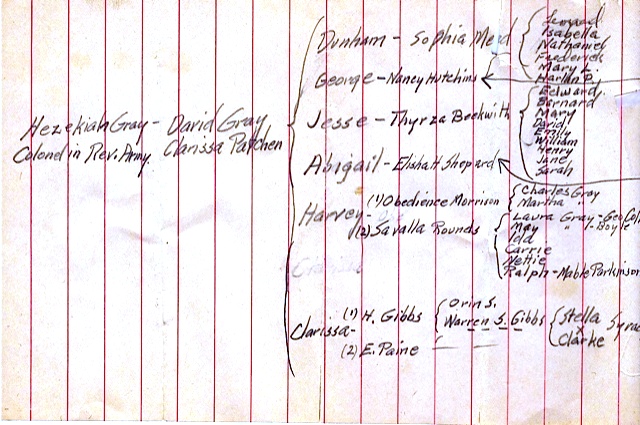 Hezekiah Gray - David Gray
Colonel in Rev. Army. Clarissa Patchen
Dunham - Sophia Mead
Lemuel
Isabella
Nathaniel
Frederick
Mary E
Harlan P.
George - Nancy Hutchins
Jesse - Thyrza Beckwith
Edward
Bernard
Mary
David
Emily
William
Henry
Jane
Sarah
Abigail - Elisha H Shepard
Harvey -
(1) Obedience Morrison
Charles Gray
Martha "
(2) Savalla Rounds
Laura Gray - Geo Col
May " - Boyle
Ida
Carrie
Nettie
Ralph - Mable Parkinson
Clarissa -
(1) H. Gibbs
Orin S.
Warren S. Gibbs
Stella
x
Clarke
Syrac
(2) E. Paine